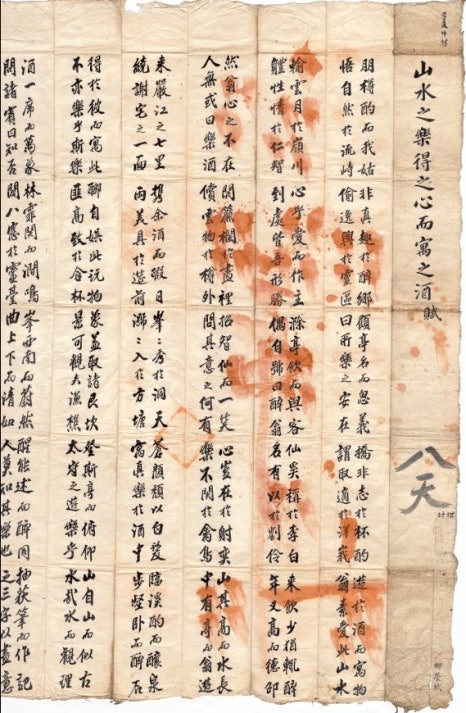 山水之樂得之心而寓之酒賦
八天
朋樽酌而我姑 非真趣於醉鄉 顧亭名而思義 非志於杯酌 遊於酒而寓物
悟自然於流峙 偷逸興於靈區 曰所樂之安在 謂取適於洋峩 翁素愛此山水
輸雲月於川 心乎愛而作主 滁亭飲而與客 仙奚稱於李白 來飲少猶輒醉
體性情於仁智 到處皆吾形勝 偶自號曰醉翁 名有以於劉伶 年又高而德邵
然翁心之不在 開簾櫳於畫裡 招智仙而一笑 心豈在於射奕 山其高而水長
人無或曰樂酒 償雲物於樽外 問其意之何有 樂不関於禽鳥 中有亭而翁遊
来嚴江之七里 携余酒而暇日 峯〻秀於洞天 蒼顔頹以白髮 臨溪酌而釀泉
統謝宅之一面 両美具於造前 入於方塘 寓真樂於酒中 步壑卧而醉石
得於彼而寓此 聊自娛此説物 象盖取諸艮坎 登斯亭而俯仰 山自山而似古
不亦樂乎斯樂 匪高致於合杯 景可觀夫漁樵 太守之遊樂乎 水哉水而觀理
酒一席而萬象 林霏開而澗鳴 峯西南而蔚然 醒能述而醉同 抽荻筆而作記
問諸賓曰知否 八窓於靈臺 曲上下而清如 人莫知其樂也 之三字以盡意